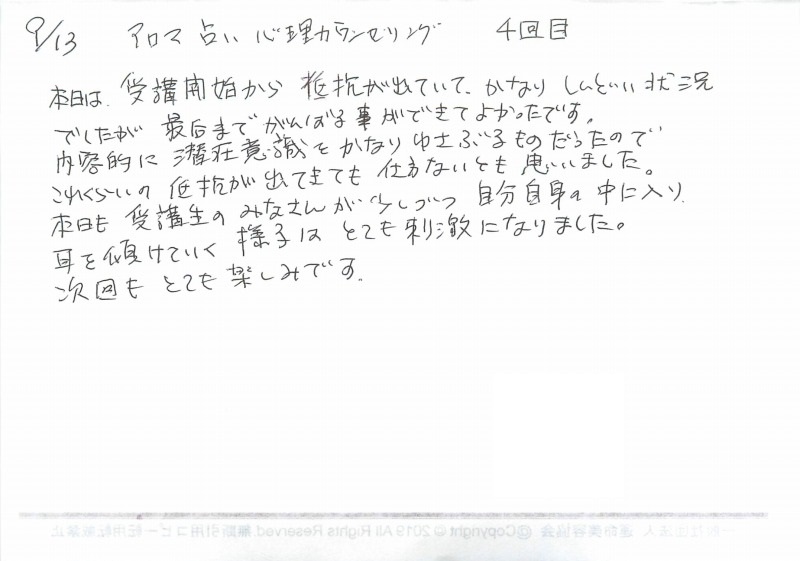 9/13 アロマ占い心理カウンセリング 4回目
本日は、受講開始から抵抗が出ていて、かなりしんどい状況
でしたが最后までがんばる事ができてよかったです。
内容的に潜在意識をかなりゆさぶるものだったので
これくらいの抵抗が出てきても仕方ないとも思いました。
本日も受講生のみなさんが少しづつ自分自身の中に入り
耳を傾けていく様子はとても刺激になりました。
次回もとても楽しみです。
一般社団法人 運命美容協会 @Copyright © 2019 All Rights Reserved.無断引用コピー転用転載禁止